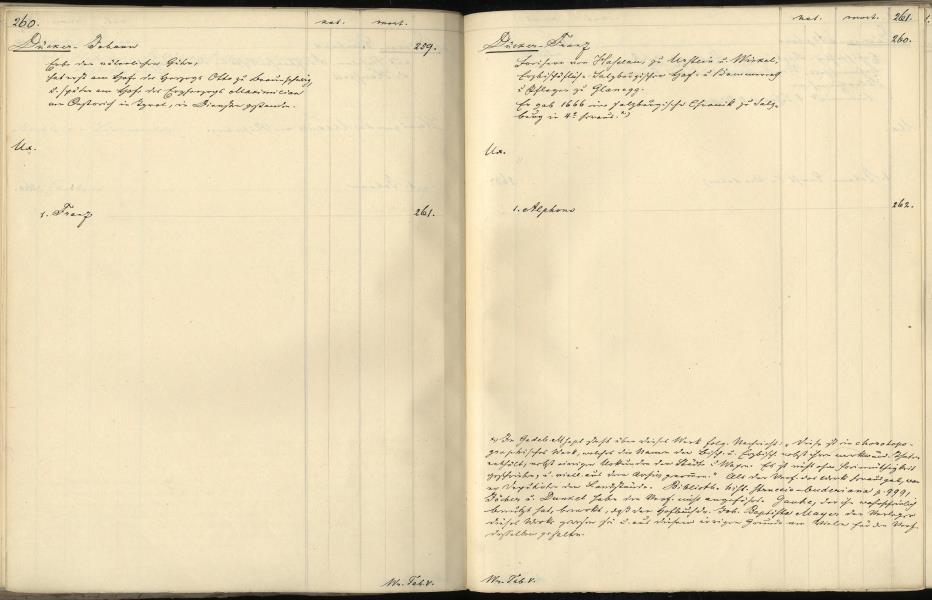 260.
nat. mort.
Dücker - Johann 259.
Erbe der väterlichen Güter,
hat erst am Hofe des Herzogs Otto zu Braunschweig,
u. später am Hofe des Erzherzogs Maximilian
von Österreich in Tyrol, in Diensten gestanden.
Ux.
1. Franz 261.
Wr. Tab. V.
nat. mort. 261.
Dücker - Franz 260.
Freiherr von Haslau zu Urstein u. Winkel,
Erzbischöflich-Salzburgischer Hof- u. Kammerrath
u. Pfleger zu Glanegg.
Er gab 1666 eine salzburgische Chronik zu Salz-
burg in 4° heraus. *)
Ux.
1. Alphons 262.
*) In Gadeb. Mscpt steht über dieses Werk folg. Nachricht: „Dieses ist ein chorotopo-
graphisches Werk, welches die Namen der Bisch. u. Erzbisch. nebst ihren merkwürd. Thaten
enthält, nebst einigen Urkunden der Städte u. Wapen. Es ist nicht ohne Freimüthigkeit
geschrieben, u. viell. aus dem Archiv genommen." Als der Verf. das Werk herausgab, war
er Deputirter der Landstände. Biblioth. hist. Struvio-buderiana p. 999,
Jöcher u. Dunkel haben den Verf. nicht angeführt. Gauhe, der ihn wahrscheinlich
benutzt hat, bemerkt, daß der Joh. Baptista Mayer der Verleger
dieses Werks gewesen sei u. aus diesem irrigen Grunde von Vielen für den Verf.
desselben gehalten.
Wr. Tab. V.